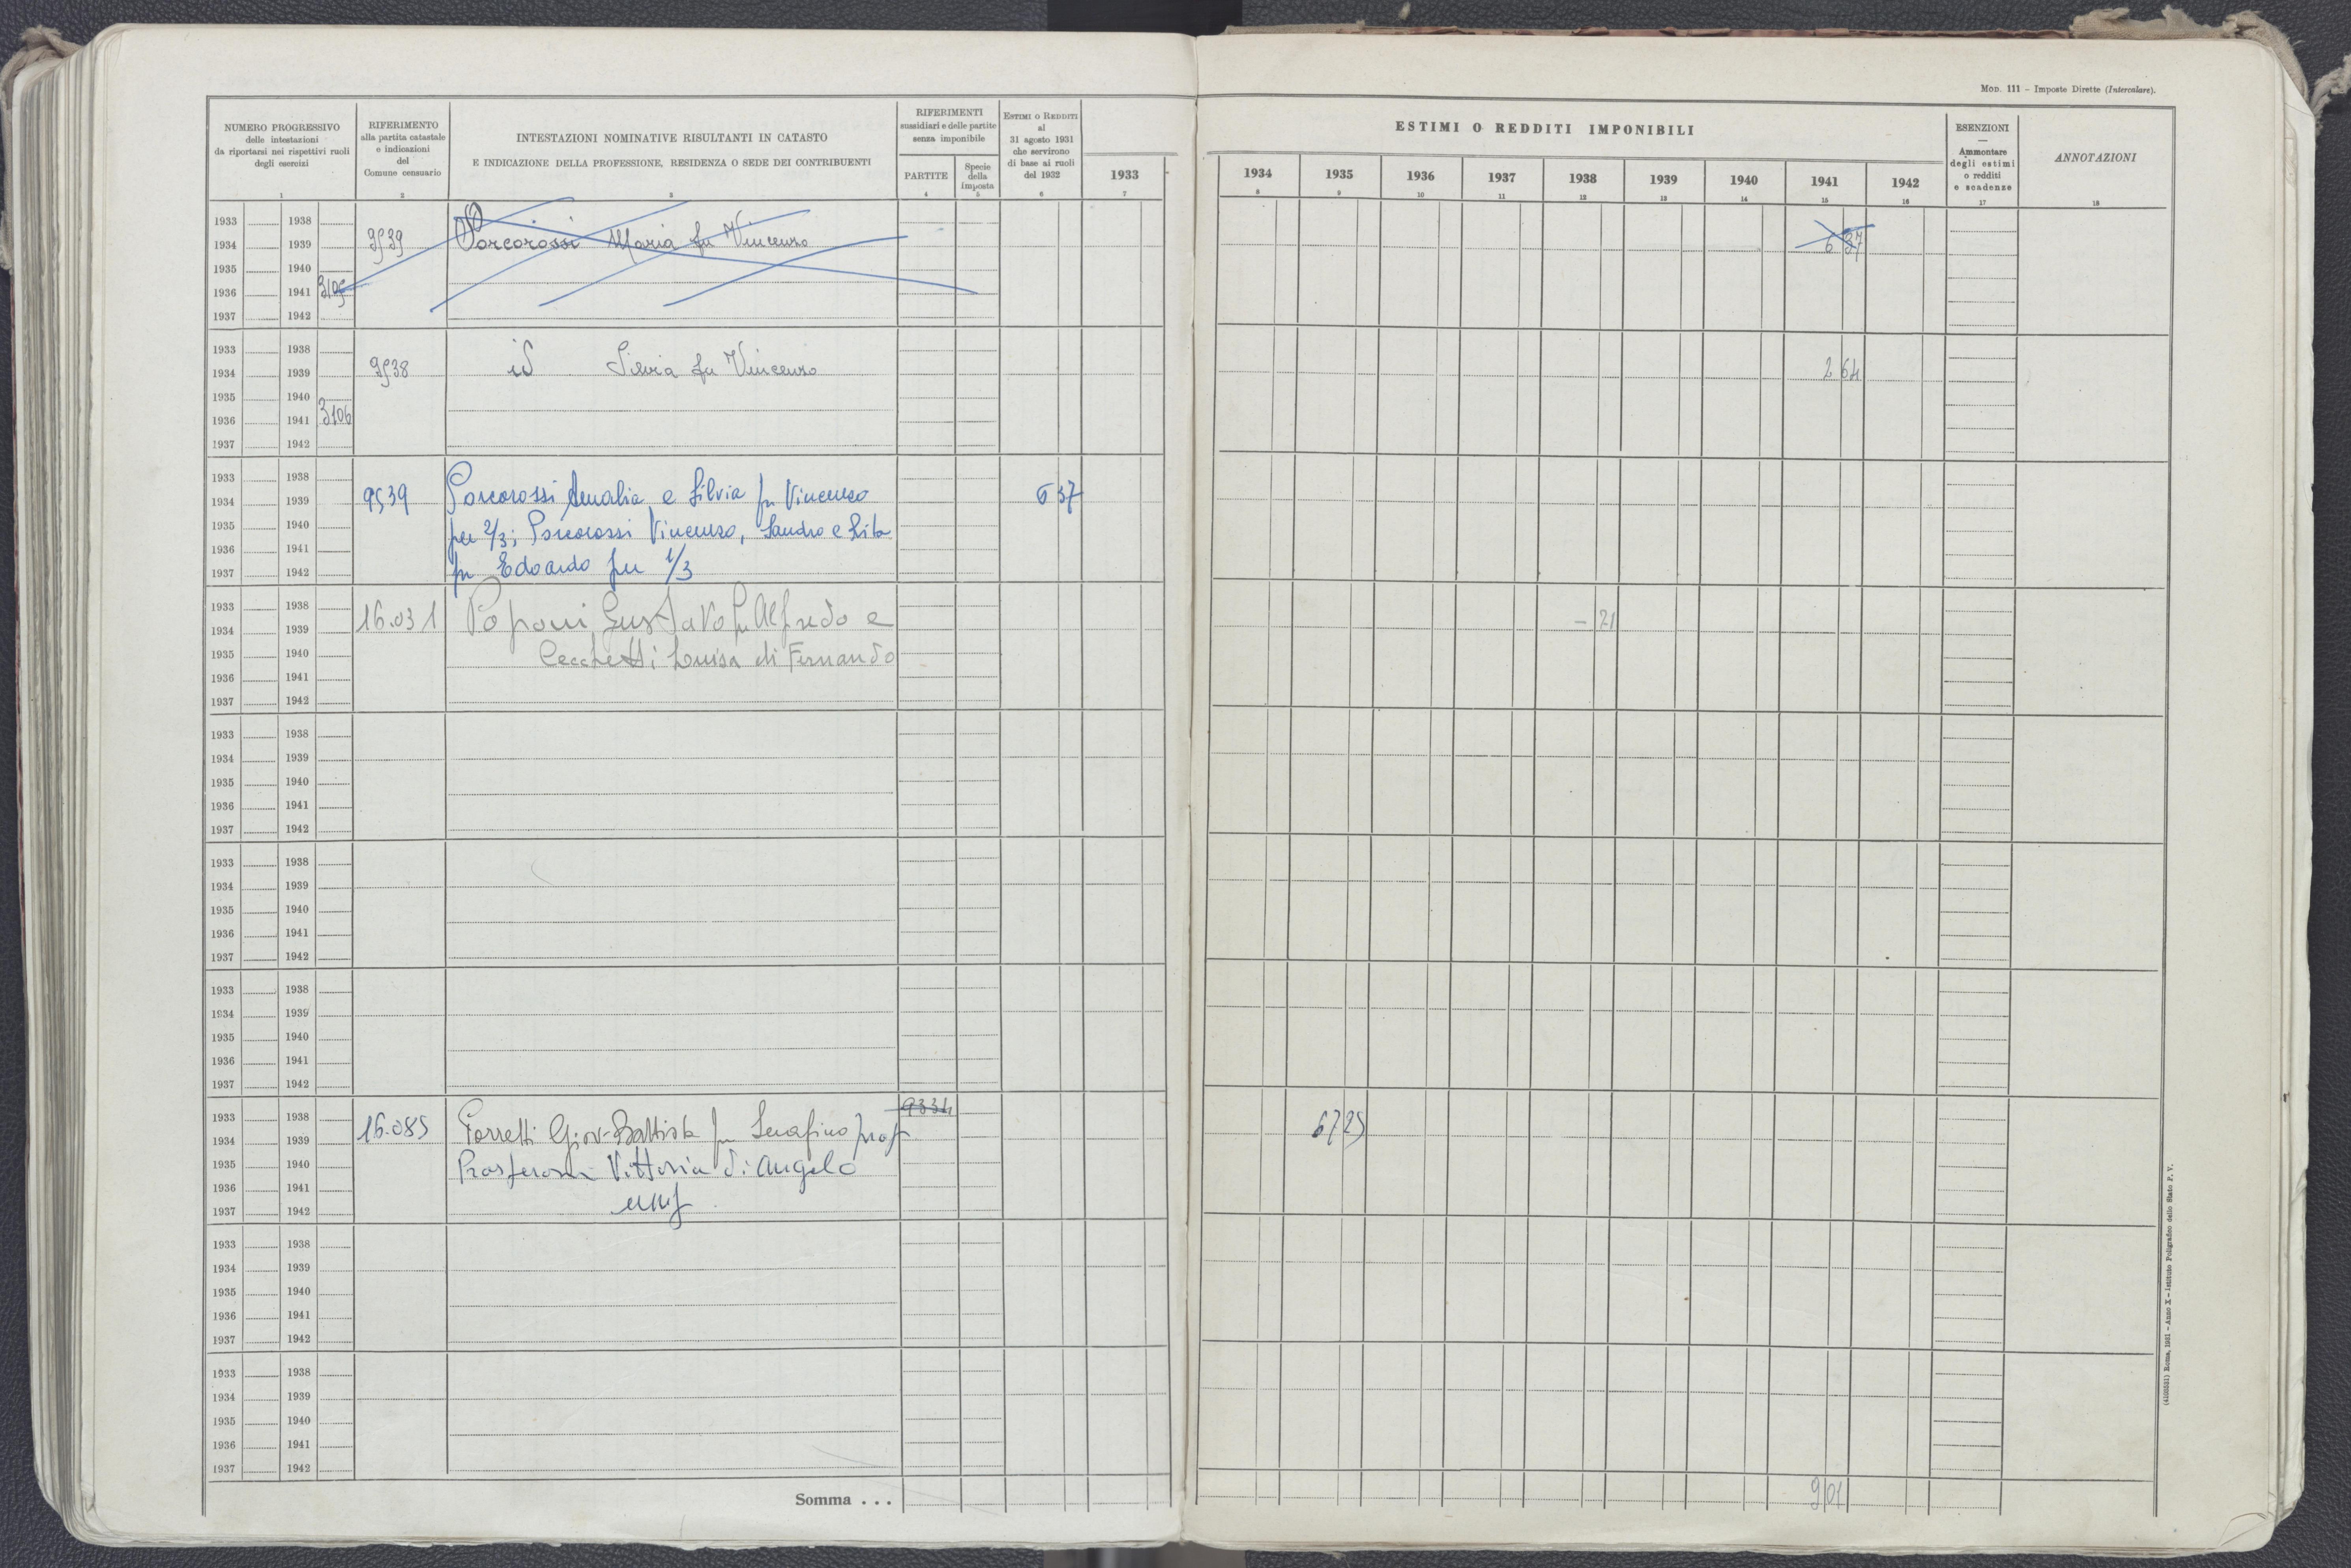 MOD. 111 – Imposte Dirette (Intercalare).
NUMERO PROGRESSIVO
delle intestazioni
da riportarsi nei rispettivi ruoli
degli esercizi
1
RIFERIMENTO
alla partita catastale
e indicazioni
del
Comune censuario
2
INTESTAZIONI NOMINATIVE RISULTANTI IN CATASTO
E INDICAZIONE DELLA PROFESSIONE, RESIDENZA O SEDE DEI CONTRIBUENTI
3
RIFERIMENTI
sussidiari e delle partite
senza imponibile
PARTITE
4
Specie
della
imposta
5
ESTIMI O REDDITI
al
31 agosto 1931
che servirono
di base ai ruoli
del 1932
6
1933
7
ESTIMI O REDDITI IMPONIBILI
1934 1935 1936 1937 1938 1939 1940 1941 1942
8 9 10 11 12 13 14 15 16
ESENZIONI
—
Ammontare
degli estimi
o redditi
e scadenze
17
ANNOTAZIONI
18
1933 1938
1934 1939 9539 Porcorossi Maria fu Vincenzo 6 37
1935 1940
1936 1941 3105
1937 1942
1933 1938
1934 1939 9538 id Silvia fu Vincenzo 2 64
1935 1940
1936 1941 3106
1937 1942
1933 1938
1934 1939 9539 Porcorossi Amalia e Silvia fu Vincenzo 6 37
1935 1940 per 2/3; Porcorossi Vincenzo, Sandro e Rita
1936 1941
1937 1942 fu Edoardo per 1/3
1933 1938
1934 1939 16.031 Poponi Gustavo fu Alfredo e – 21
1935 1940 Cecchetti Luisa di Fernando
1936 1941
1937 1942
1933 1938
1934 1939
1935 1940
1936 1941
1937 1942
1933 1938
1934 1939
1935 1940
1936 1941
1937 1942
1933 1938
1934 1939
1935 1940
1936 1941
1937 1942
1933 1938 9334
1934 1939 16.085 Porretti Giov-Battista fu Serafino prop 67 25
1935 1940 Vittoria di Angelo
1936 1941
1937 1942 usuf
1933 1938
1934 1939
1935 1940
1936 1941
1937 1942
1933 1938
1934 1939
1935 1940
1936 1941
1937 1942
Somma . . . 9 01
(4100531) Roma, 1931 – Anno X – Istituto Poligrafico dello Stato P. V.